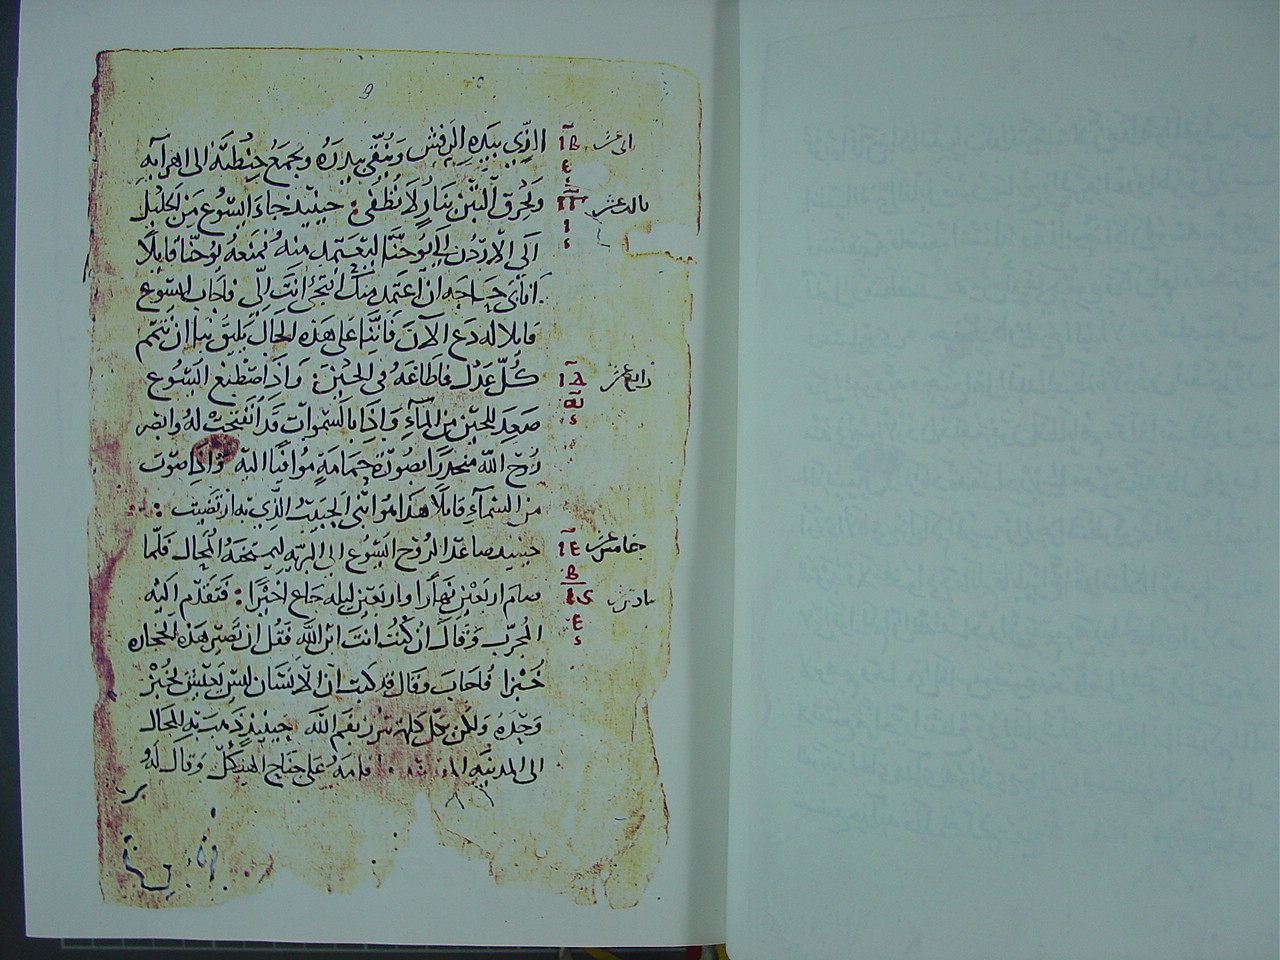 الذي بيده الرفش وينقي بيدره ويجمع حنطته الى اهرآيه
ويحرق التبن بنار لا تطفى : حينيذ جاء ايسوع من الجليل
الى الاردن الى يوحنا ليعتمد منه فمنعه يوحنا قايلا
انا حاجه ان اعتمد منك انت الي فاجاب ايسوع
قايلا له دع الآن فاننا على هذه الحال يليق بنا ان نتمم
كل عدل فاطاعه في الحين : واذ اصطبغ ايسوع
صعد للحين من المآء واذا بالسموات قد انفتحت له وابصر
روح الله منحدرا بصورة حمامة موافيا اليه واذا صوت
من السمآء قايلا هذا هو ابني الحبيب الذي به ارتضيت :
حينيذ صاعد الروح ايسوع الى البريه ليمتحنه المحال فلما
صام اربعين نهارا واربعين ليله جاع اخيرا : فتقدم اليه
المجرب وقال ان كنت انت ابن الله فقل ان تصير هذه الحجاره
خبزا فاجاب وقال قد كتب ان الانسان ليس يعيش بخبز
وحده ولكن بكل كلمة تبرز من فم الله حينيذ ذهب به المحال
الى المدينه اقامه على جناح الهيكل وقال له
رابع عشر
خامس عشر